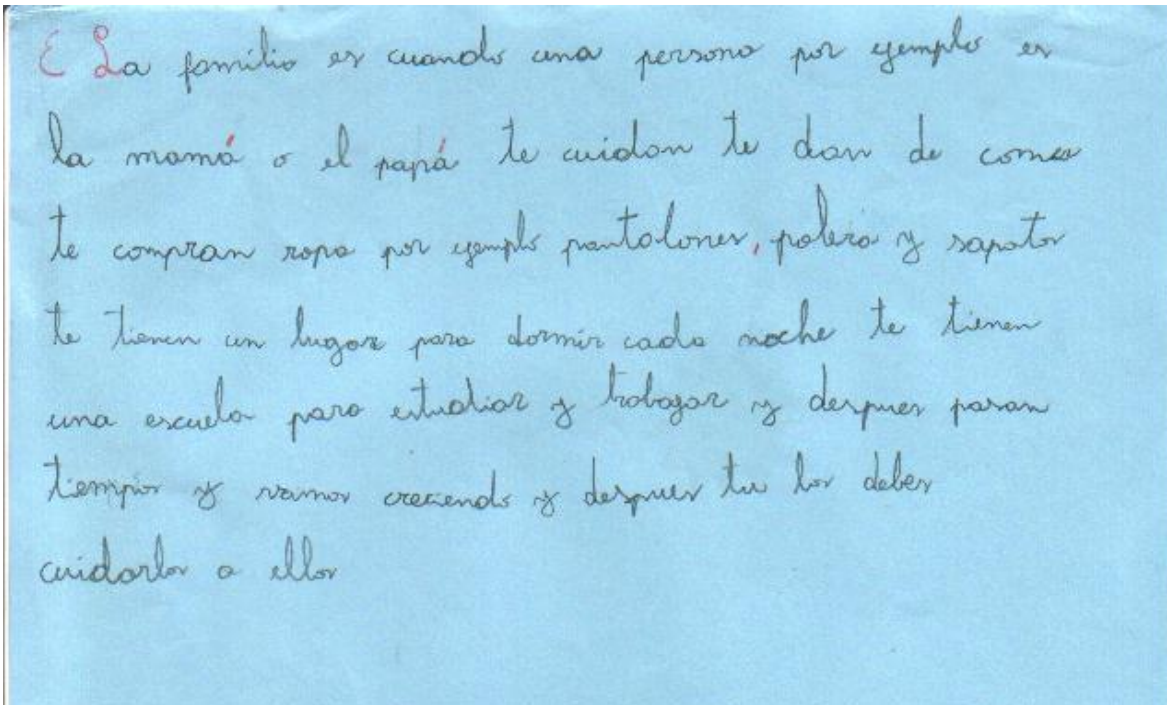 E La familia es cuando una persona por ejemplo es
la mamá o el papá te cuidan te dan de comer
te compran ropa por ejemplo pantalones, polera y sapatos
te tienen un lugar para dormir cada noche te tienen
una escuela para estudiar y trabagar y despues pasan
tiempos y vamos creciendo y despues tu los debes
cuidarlos a ellos